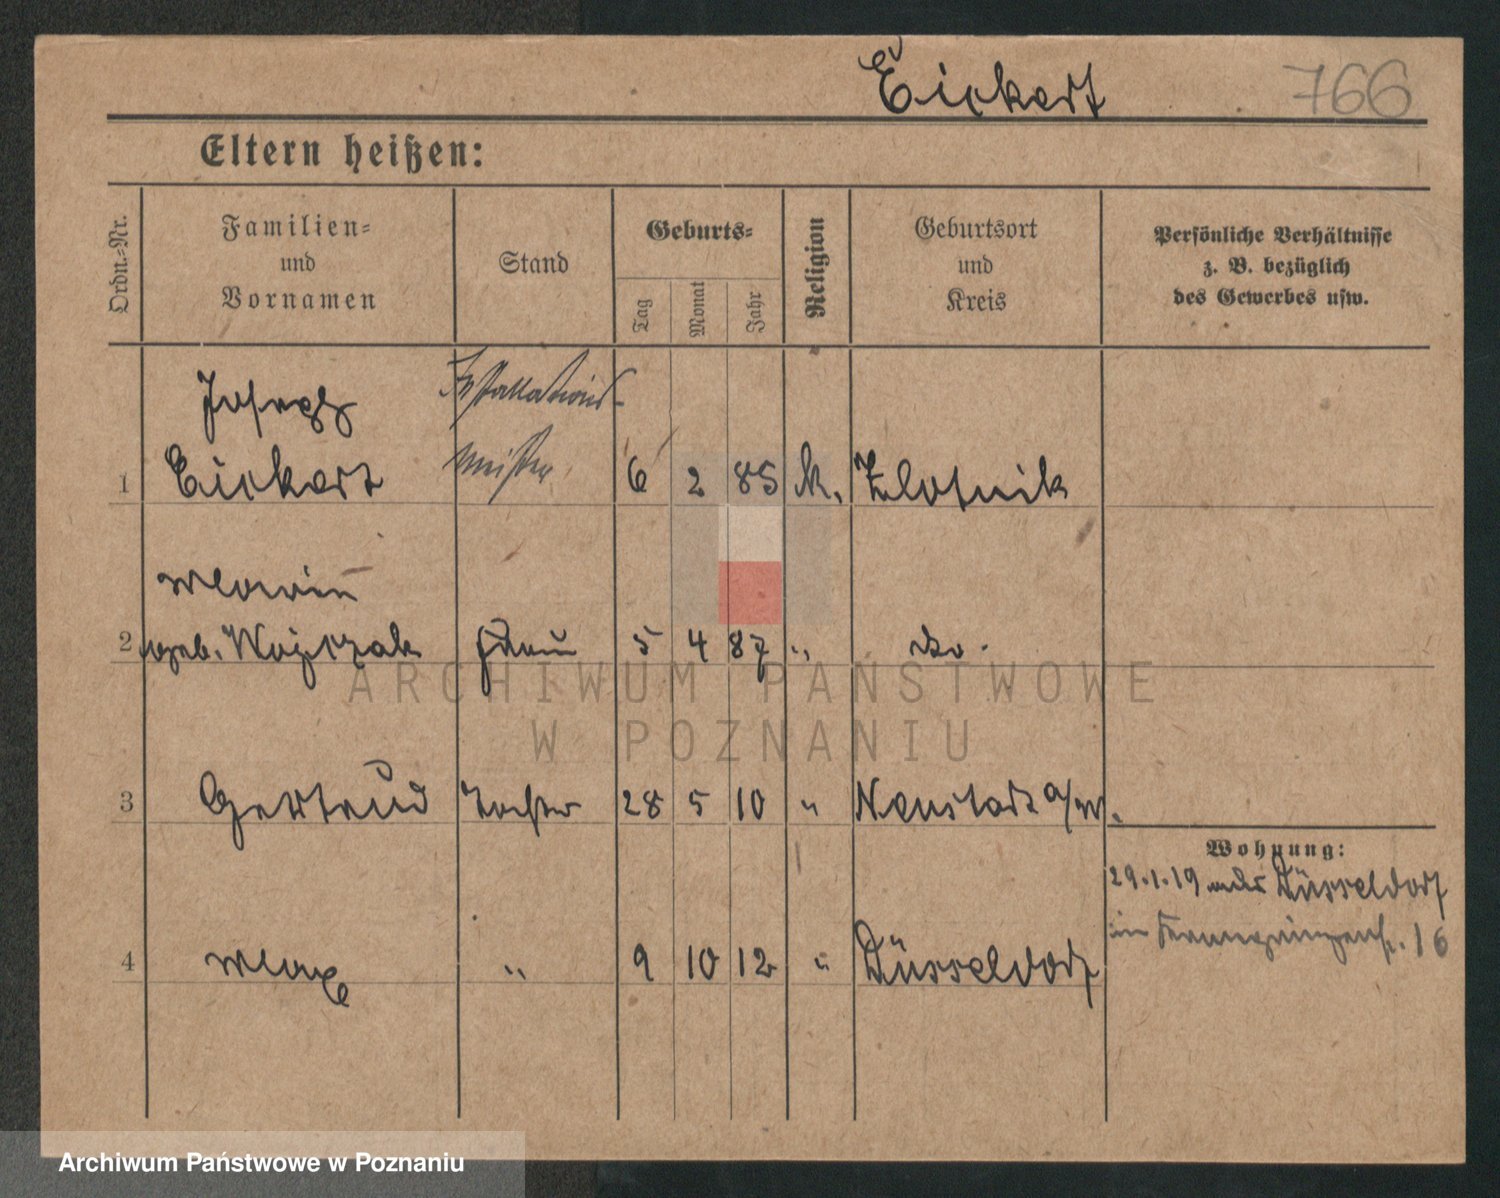 Eickert 766
Eltern heißen:
Ordn.-Nr.
Familien- und Vornamen
Stand
Geburts-
Tag Monat Jahr
Religion
Geburtsort und Kreis
Persönliche Verhältnisse
z. B. bezüglich
des Gewerbes usw.
Joseph Installations-
1 Eickert meister 6 2 85 k. Zlotnik
Maria
2 geb. Wojczak Frau 5 4 87 " do.
3 Gertrud Tochter 28 5 10 " Neustadt a/W.
Wohnung:
29.1.19 aus Düsseldorf
16
4 " 9 10 12 " Düsseldorf
ARCHIWUM PAŃSTWOWE
W POZNANIU
Archiwum Państwowe w Poznaniu